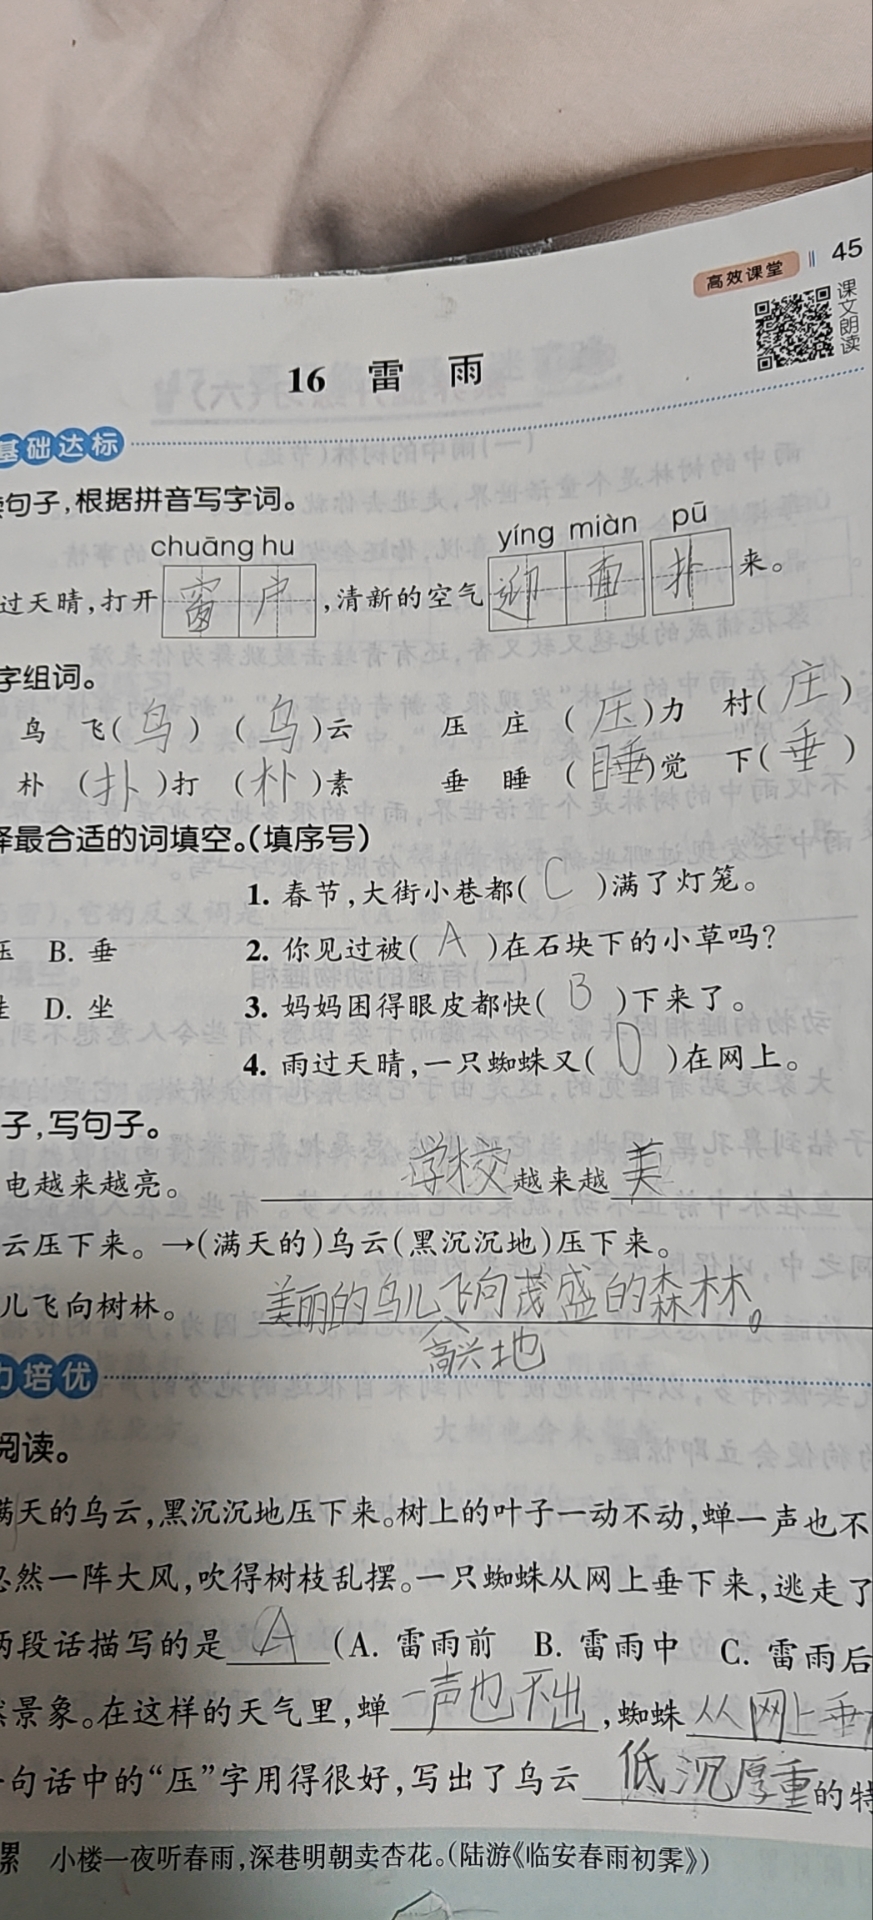 高效课堂 45
课文朗读
16 雷雨
基础达标
读句子,根据拼音写字词。
chuāng hu yíng miàn pū
过天晴,打开窗户,清新的空气迎面扑来。
字组词。
鸟 飞(鸟) (乌)云 压 庄 (压)力 村(庄)
朴 (扑)打 (朴)素 垂 睡 (睡)觉 下(垂)
择最合适的词填空。(填序号)
1. 春节,大街小巷都(C)满了灯笼。
压 B. 垂 2. 你见过被(A)在石块下的小草吗?
挂 D. 坐 3. 妈妈困得眼皮都快(B)下来了。
4. 雨过天晴,一只蜘蛛又(D)在网上。
子,写句子。
电越来越亮。 学校越来越美
云压下来。→(满天的)乌云(黑沉沉地)压下来。
儿飞向树林。 美丽的鸟儿飞向茂盛的森林。
高兴地
力培优
阅读。
满天的乌云,黑沉沉地压下来。树上的叶子一动不动,蝉一声也不
忽然一阵大风,吹得树枝乱摆。一只蜘蛛从网上垂下来,逃走了
两段话描写的是A(A. 雷雨前 B. 雷雨中 C. 雷雨后
景象。在这样的天气里,蝉一声也不出,蜘蛛从网上垂下
句话中的“压”字用得很好,写出了乌云低沉厚重的特
累 小楼一夜听春雨,深巷明朝卖杏花。(陆游《临安春雨初霁》)